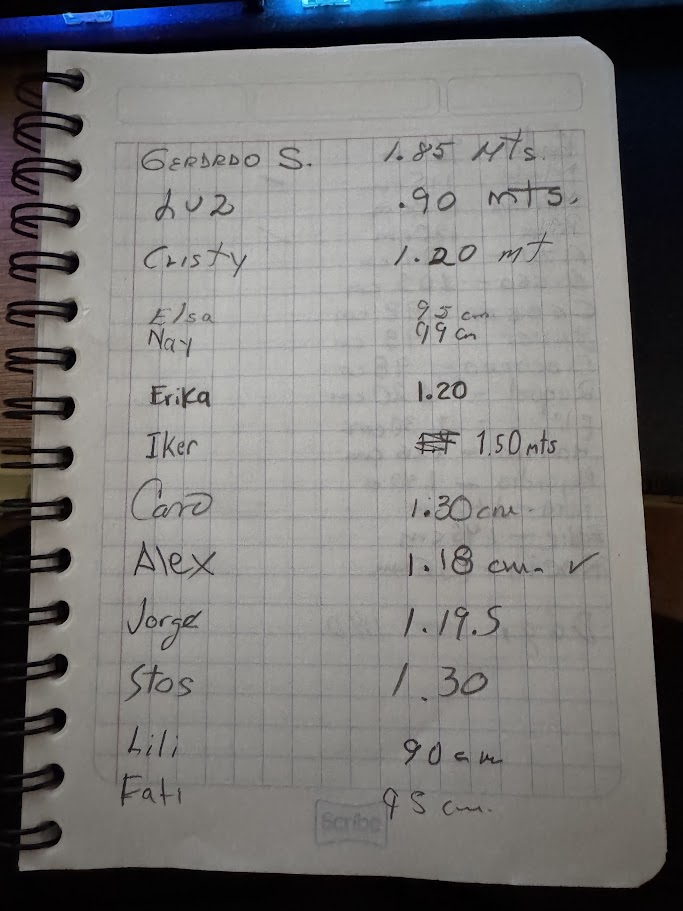 GERARDO S. 1.85 Mts.
Luz .90 mts.
Cristy 1.20 mt
Elsa 95 cm
Nay 99 cm
Erika 1.20
Iker 1.50 mts
Caro 1.30 cm.
Alex 1.18 cm. ✓
Jorge 1.19.5
Stos 1.30
Lili 90 cm
Fati 95 cm.
Scribe